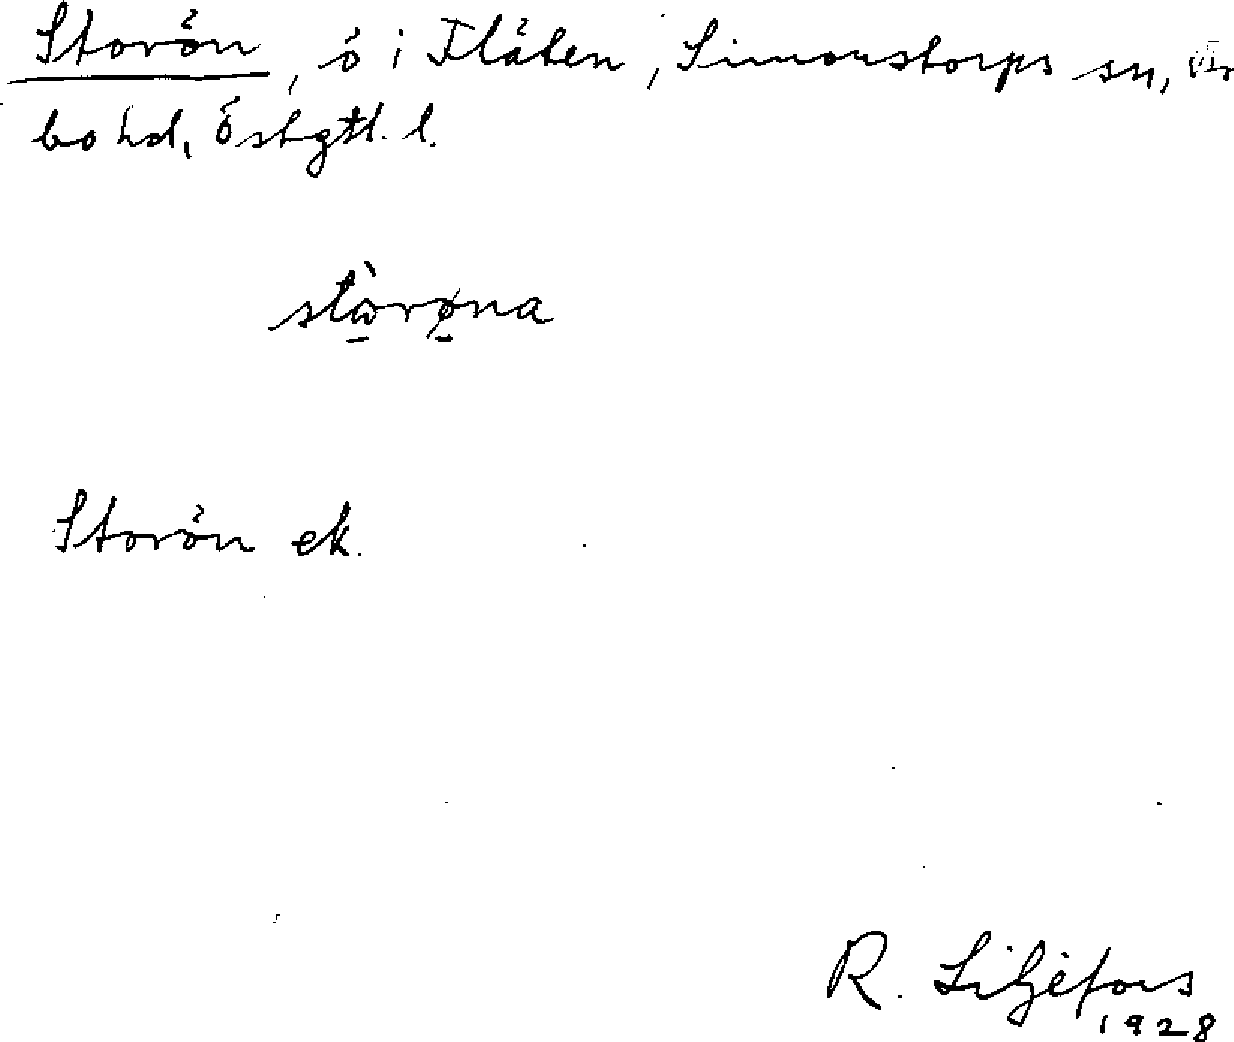 Storön, ö i Flåten, Simonstorps sn,
bo hd, Östgtl. l.
stὼrøna
Storön ek.
R. Liljefors
1928